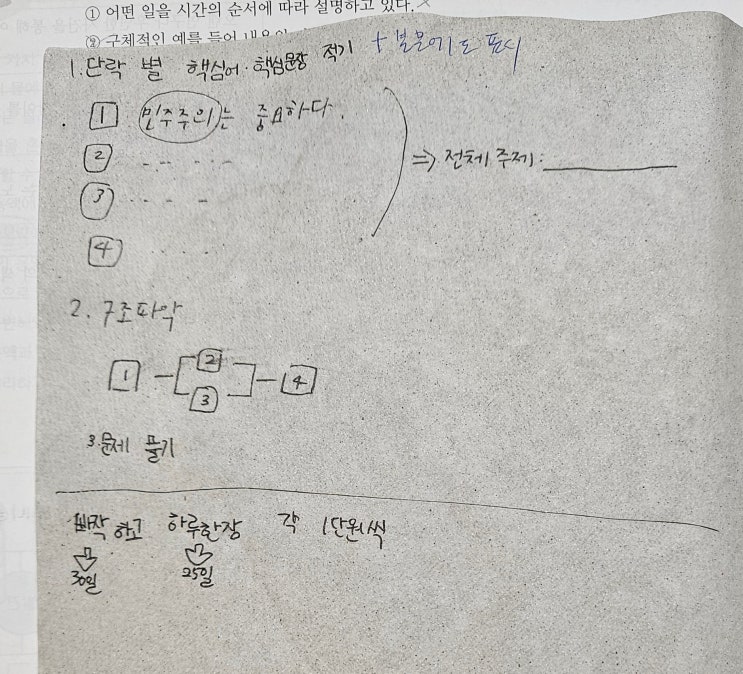 ① 어떤 일을 시간의 순서에 따라 설명하고 있다.
② 구체적인 예를 들어 내용이
1. 단락 별 핵심어·핵심문장 적기 + 본문에도 표시
1 민주주의는 중요하다.
2
3
4
⇒ 전체 주제:
2. 구조파악
1 2 3 4
3. 문제 풀기
빠작하고 하루한장 각 1단원씩
30일 25일